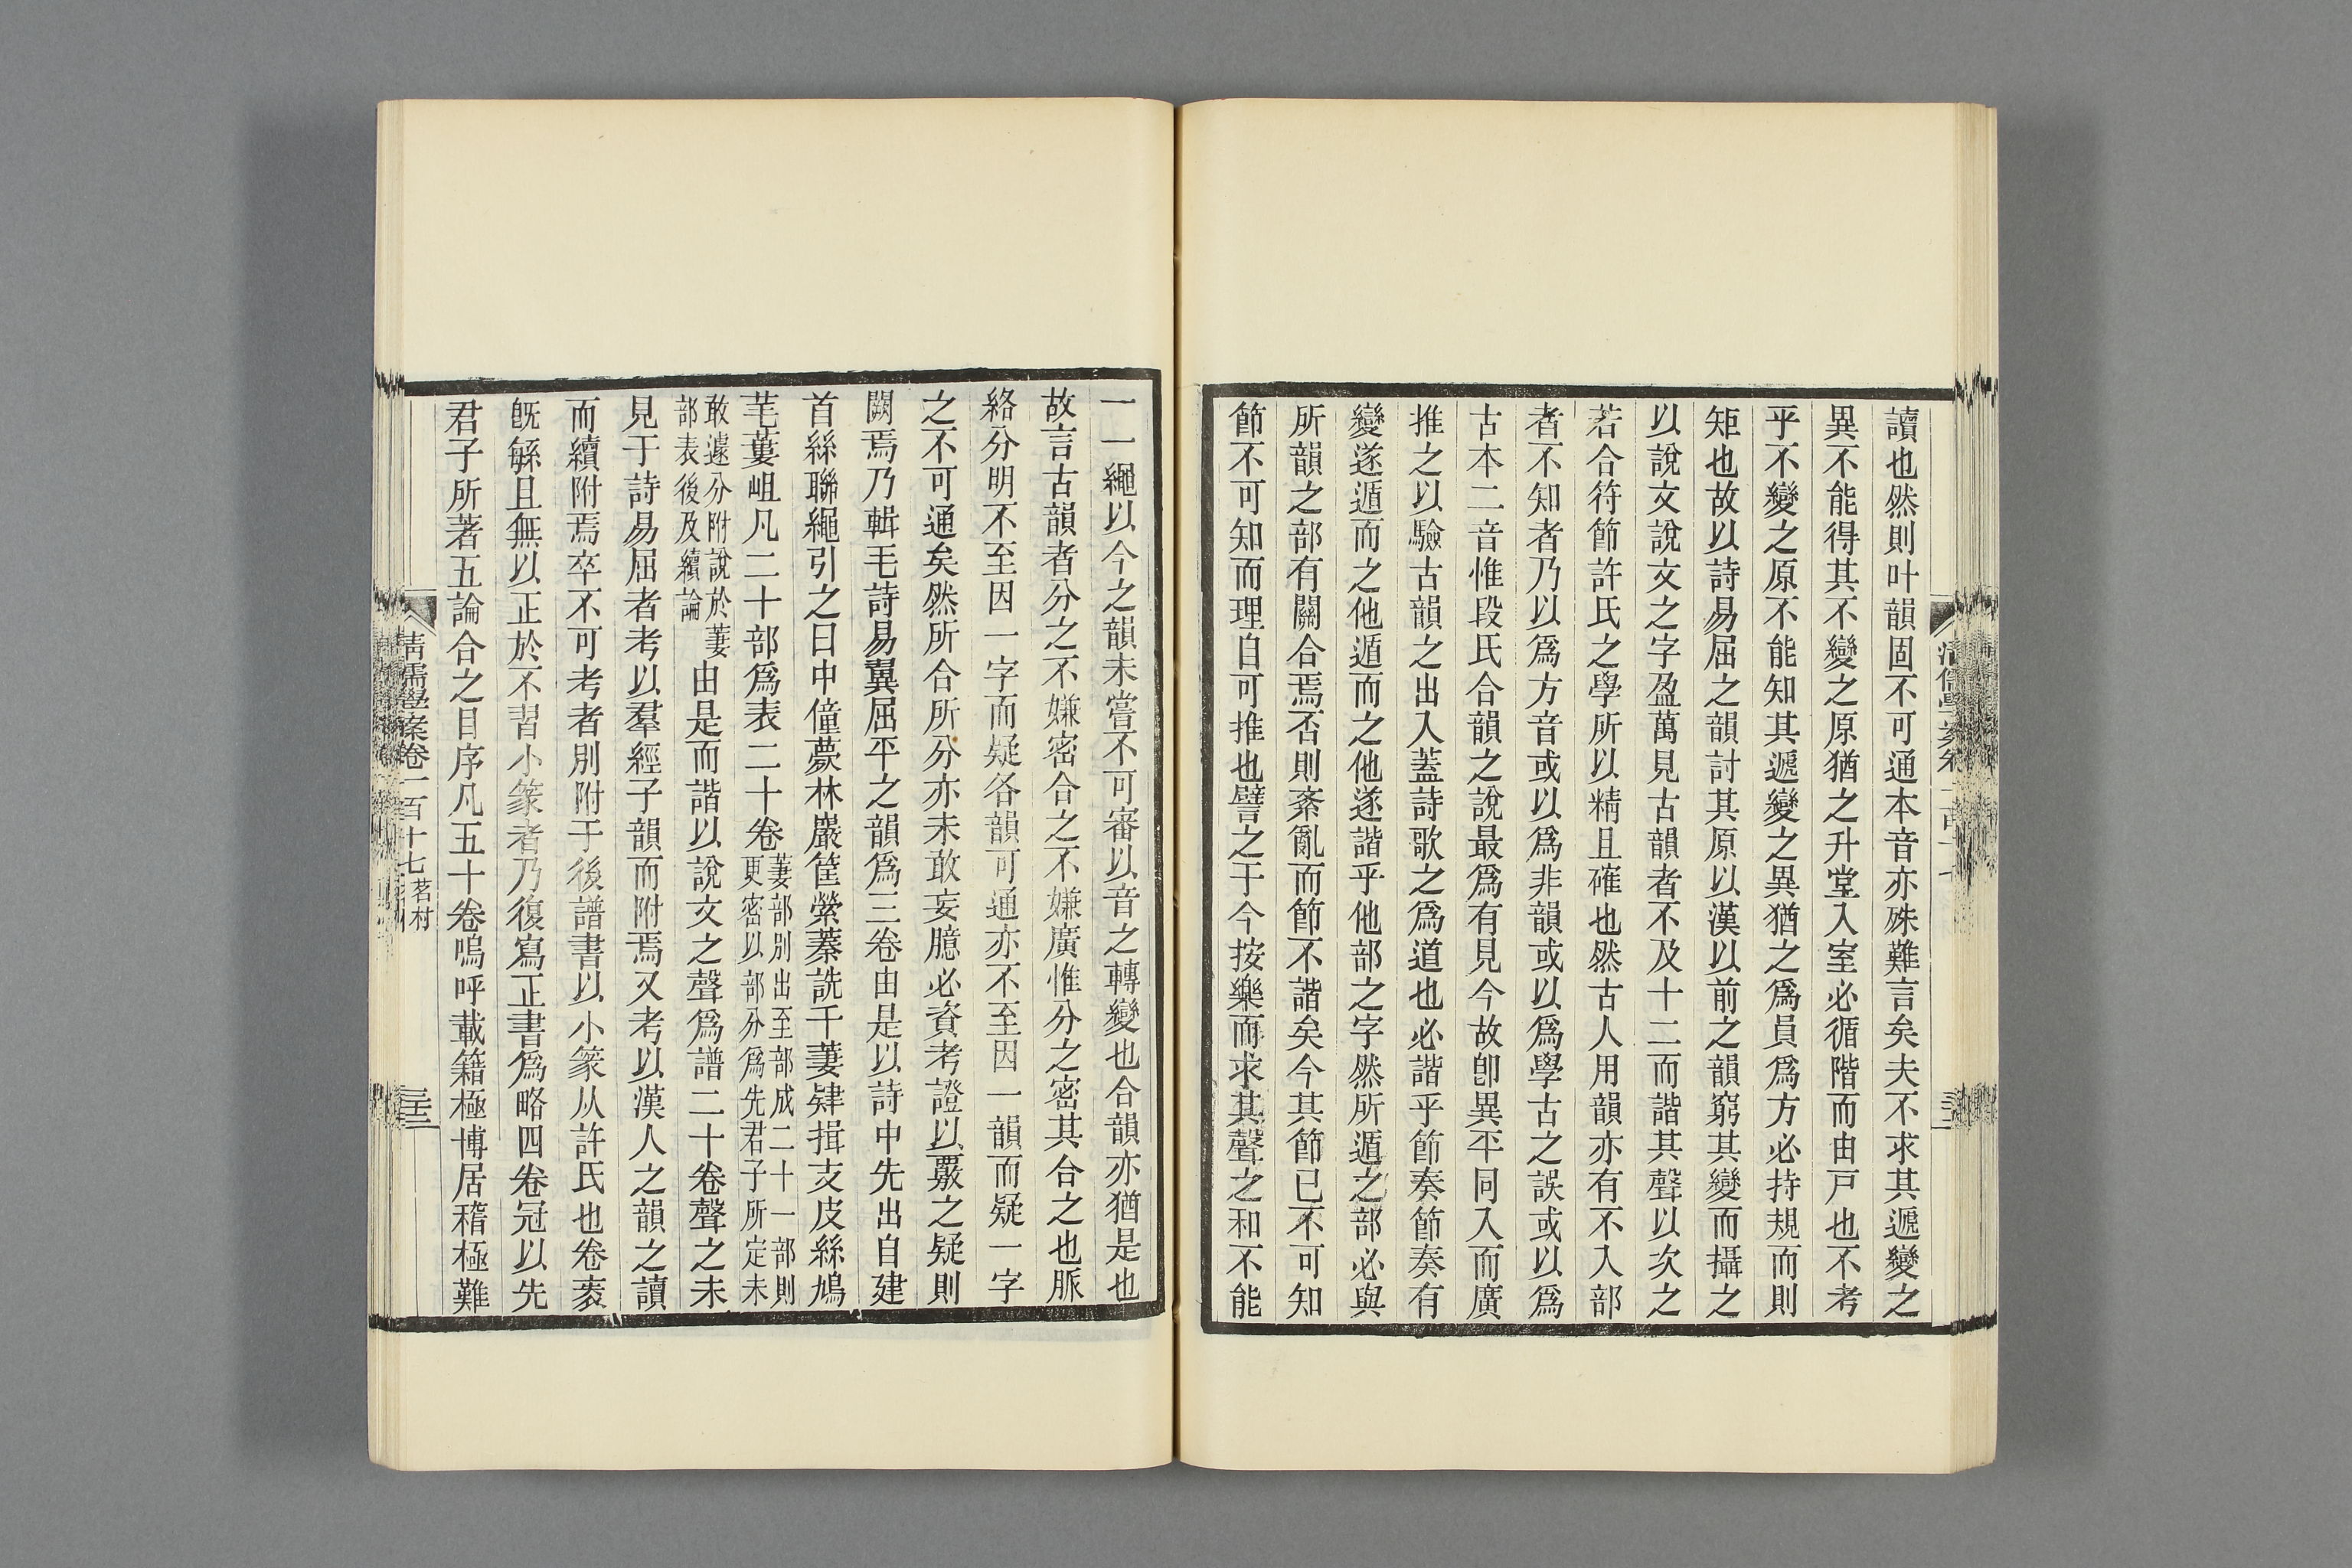 讀也然則叶韻固不可通本音亦殊難言矣夫不求其遞變之
異不能得其不變之原猶之升堂入室必循階而由戸也不考
乎不變之原不能知其遞變之異猶之爲員爲方必持規而則
矩也故以詩易屈之韻討其原以漢以前之韻窮其變而攝之
以說文說文之字盈萬見古韻者不及十二而諧其聲以次之
若合符節許氏之學所以精且確也然古人用韻亦有不入部
者不知者乃以爲方音或以爲非韻或以爲學古之誤或以爲
古本二音惟段氏合韻之說最爲有見今故卽異平同入而廣
推之以驗古韻之出入蓋詩歌之爲道也必諧乎節奏節奏有
變遂遁而之他遁而之他遂諧乎他部之字然所遁之部必與
所韻之部有關合焉否則紊亂而節不諧矣今其節已不可知
節不可知而理自可推也譬之于今按樂而求其聲之和不能
一一繩以今之韻未嘗不可審以音之轉變也合韻亦猶是也
故言古韻者分之不嫌密合之不嫌廣惟分之密其合之也脈
絡分明不至因一字而疑各韻可通亦不至因一韻而疑一字
之不可通矣然所合所分亦未敢妄臆必資考證以覈之疑則
闕焉乃輯毛詩易翼屈平之韻爲三卷由是以詩中先出自建
首絲聯繩引之曰中僮薎林巖筐縈蓁詵干萋肄揖支皮絲鳩
芼蔞岨凡二十部爲表二十卷萋部別出至部成二十一部則
更密以部分爲先君子所定未
敢遽分附說於萋
部表後及續論由是而諧以說文之聲爲譜二十卷聲之未
見于詩易屈者考以羣經子韻而附焉又考以漢人之韻之讀
而續附焉卒不可考者別附于後譜書以小篆从許氏也卷袤
旣緐且無以正於不習小篆者乃復寫正書爲略四卷冠以先
君子所著五論合之目序凡五十卷嗚呼載籍極博居稽極難
清儒學案卷一百十七 茗村
三十三